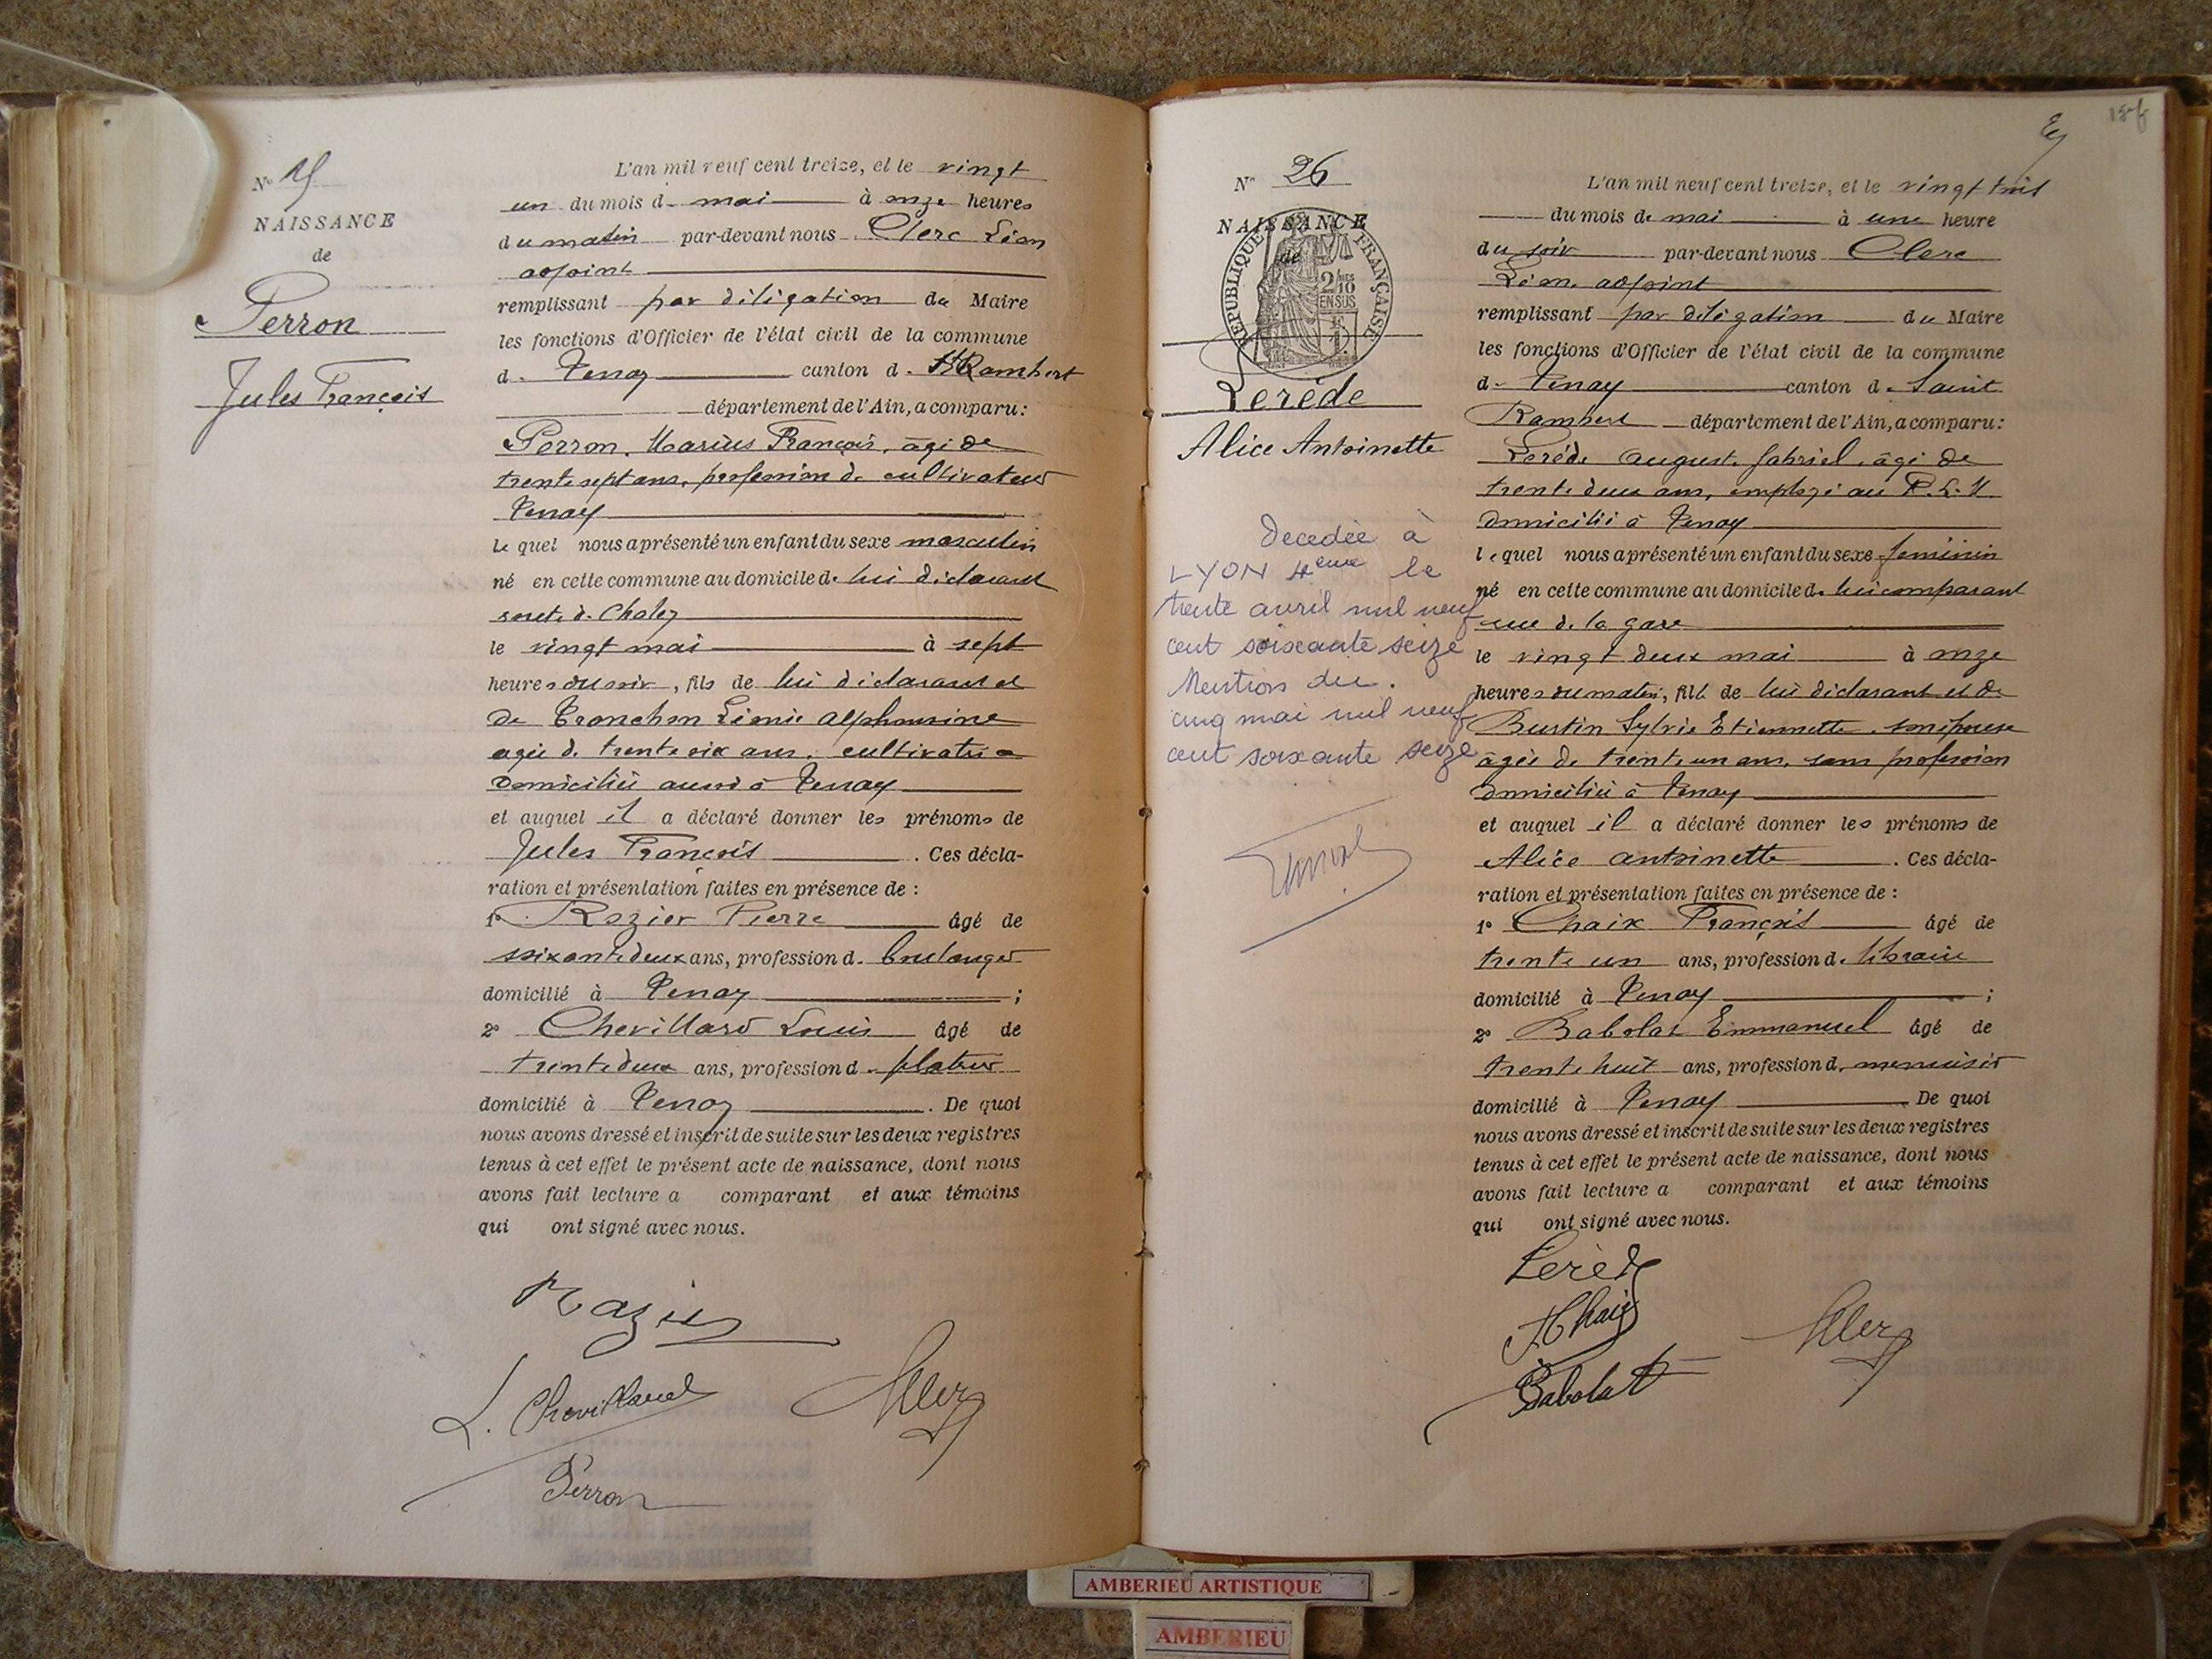 N° 25
NAISSANCE
de
Perron
Jules François
L'an mil neuf cent treize, et le vingt
un du mois de mai à onze heures
du matin par-devant nous Clerc Léon
adjoint
remplissant par délégation du Maire
les fonctions d'Officier de l'état civil de la commune
de Tenay canton de St Rambert
département de l'Ain, a comparu:
Perron, Marius François, âgé de
trente sept ans, profession de cultivateur
Tenay
lequel nous a présenté un enfant du sexe masculin
né en cette commune au domicile de lui déclarant
de Chaley
le vingt mai à sept
heures du soir, fils de lui déclarant et
de Tronchon Léonie Alphonsine
agée de trente six ans, cultivatrice
domiciliée aussi à Tenay
et auquel il a déclaré donner les prénoms de
Jules François. Ces décla-
ration et présentation faites en présence de :
1° Rozier Pierre âgé de
soixante deux ans, profession de boulanger
domicilié à Tenay ;
2° Chevillard Louis âgé de
trente deux ans, profession de platrier
domicilié à Tenay. De quoi
nous avons dressé et inscrit de suite sur les deux registres
tenus à cet effet le présent acte de naissance, dont nous
avons fait lecture a comparant et aux témoins
qui ont signé avec nous.
Rozier
L. Chevillard
Clerc
Perron
N° 26
NAISSANCE
de
REPUBLIQUE FRANÇAISE
2/10 EN SUS
Lerède
Alice Antoinette
Decedée à
LYON 4eme le
trente avril mil neuf
cent soixante seize
Mention du.
cinq mai mil neuf
cent soixante seize
L'an mil neuf cent treize, et le vingt trois
du mois de mai à une heure
du soir par-devant nous Clerc
Léon, adjoint
remplissant par délégation du Maire
les fonctions d'Officier de l'état civil de la commune
de Tenay canton de Saint
Rambert département de l'Ain, a comparu:
Leréde August. Gabriel, âgé de
trente deux ans, employé au P. L. M
domicilié à Tenay
lequel nous a présenté un enfant du sexe féminin
né en cette commune au domicile de lui comparant
rue de la gare
le vingt deux mai à onze
heures du matin, fille de lui déclarant et de
Bustin Sylvie Etiennette, son épouse
âgée de trente un ans, sans profession
domiciliée à Tenay
et auquel il a déclaré donner les prénoms de
Alice antoinette. Ces décla-
ration et présentation faites en présence de :
1° Chaix François âgé de
trente un ans, profession de libraire
domicilié à Tenay ;
2° Babolat Emmanuel âgé de
trente huit ans, profession de menuisier
domicilié à Tenay De quoi
nous avons dressé et inscrit de suite sur les deux registres
tenus à cet effet le présent acte de naissance, dont nous
avons fait lecture a comparant et aux témoins
qui ont signé avec nous.
Lerède
F Chaix
Clerc
Babolat
AMBERIEU ARTISTIQUE
AMBERIEU